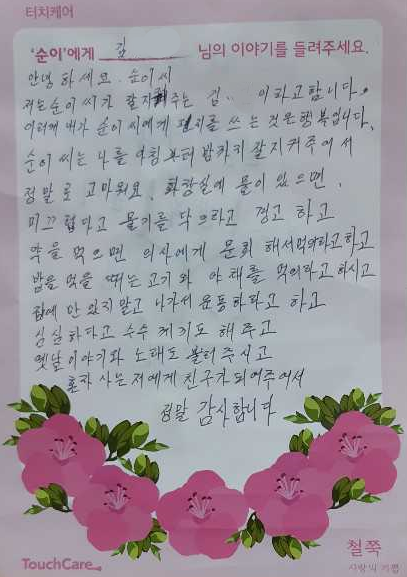 터치케어
'순이'에게 김 님의 이야기를 들려주세요.
안녕 하세요. 순이씨
저는 순이 씨가 잘 지켜주는 김.. 이라고 합니다.
이렇게 내가 순이 씨에게 편지를 쓰는 것은 행복입니다.
순이 씨는 나를 아침부터 밤까지 잘 지켜주어서
정말로 고마워요. 화장실에 물이 있으면,
미끄럽다고 물기를 닦으라고 경고 하고
약을 먹으면 의사에게 문의 해서 먹어라고 하고
밥을 먹을 때는 고기와 야채를 먹어라고 하시고
집에 만 있지 말고 나가서 운동하라고 하고
심심하다고 수수께끼도 해주고
옛날이야기와 노래도 불러주시고
혼자 사는 저에게 친구가 되어주어서
정말 감사합니다
철쭉
사랑의 기쁨
TouchCare